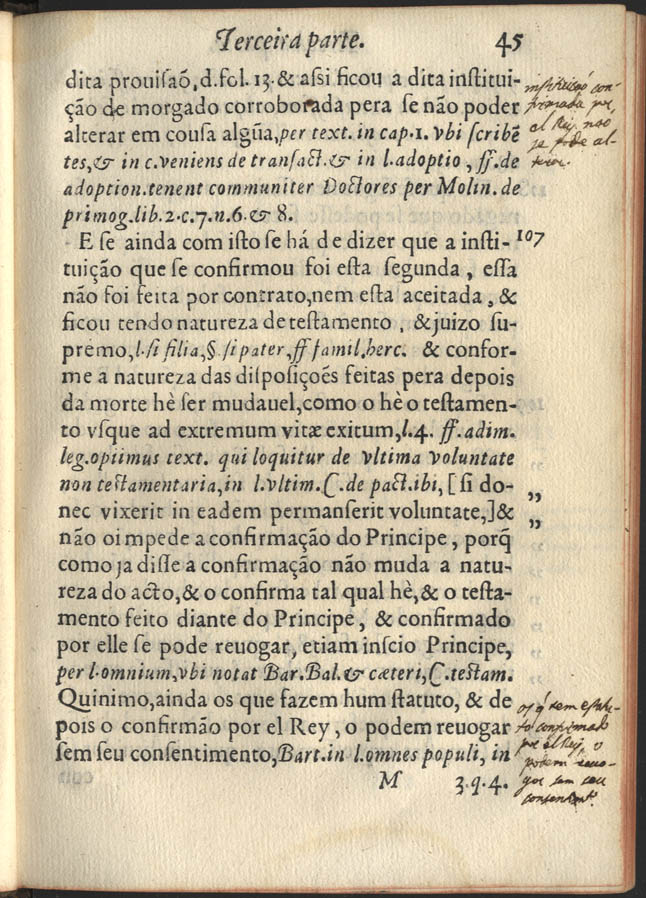 Terceira parte. 45
dita prouisaõ, d. fol. 13. & assi ficou a dita institui-
ção de morgado corroborada pera se não poder
alterar em cousa algũa, per text. in cap. 1. vbi scribẽ
tes, & in c. veniens de transact. & in l. adoptio, ff. de
adoption. tenent communiter Doctores per Molin. de
primog. lib. 2. c. 7. n. 6. & 8.
E se ainda com isto se há de dizer que a insti- 107
tuição que se confirmou foi esta segunda, essa
não foi feita por contrato, nem esta aceitada, &
ficou tendo natureza de testamento, & juizo su-
premo, l. si filia, §. si pater, ff famil. herc. & confor-
me a natureza das disposiçoẽs feitas pera depois
da morte hè ser mudauel, como o hè o testamen-
to vsque ad extremum vitæ exitum, l. 4. ff. adim.
leg. optimus text. qui loquitur de vltima voluntate
non testamentaria, in l. vltim. C. de pact. ibi, [si do- „
nec vixerit in eadem permanserit voluntate,] & „
não oimpede a confirmação do Principe, porq̃
como ja disse a confirmação não muda a natu-
reza do acto, & o confirma tal qual hè, & o testa-
mento feito diante do Principe, & confirmado
por elle se pode reuogar, etiam inscio Principe,
per l. omnium, vbi notat Bar. Bal. & cæteri, C. testam.
Quinimo, ainda os que fazem hum statuto, & de
pois o confirmão por el Rey, o podem reuogar
sem seu consentimento, Bart. in l. omnes populi, in
M 3. q. 4.
instituicaó con-
firmada por
el Rey, nao
se pode al-
terar.
os q̃ tem estatu-
to confirmado
por el Rey, o
podem reuo-
gar sem seu
consentimto.